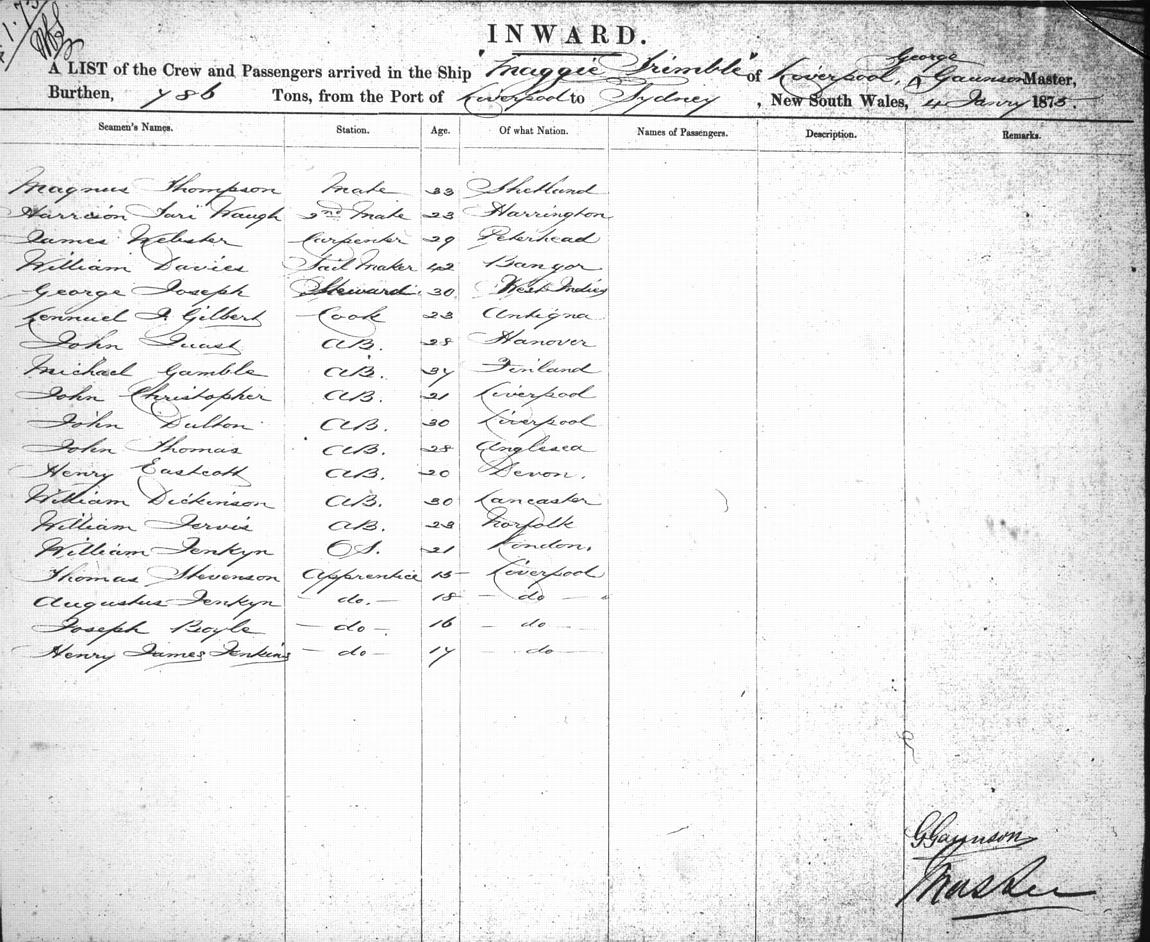 INWARD.
George
A LIST of the Crew and Passengers arrived in the Ship "Maggie Trimble" of Liverpool, Gaunson Master,
Burthen, 786 Tons, from the Port of Liverpool to Sydney, New South Wales, 4 Janry 1875.
Seamen's Names. Station. Age. Of what Nation. Names of Passengers. Description. Remarks.
Magnus Thompson Mate 33 Shetland
Harrison Waugh 2nd Mate 23 Harrington
James Webster Carpenter 29 Peterhead
William Davies Sail Maker 42 Bangor
George Joseph Steward 30 West Indies
Gilbert Cook 23 Antigua
John Quast AB. 28 Hanover
Michael Gamble AB. 37 Finland
John Christopher AB. 21 Liverpool
John Dulton AB. 30 Liverpool
John Thomas AB. 28 Anglesea
Henry Eastcott AB. 20 Devon.
William Dickinson AB. 30 Lancaster
William Jervis AB. 23 Norfolk
William Jenkyn OS. 21 London.
Thomas Stevenson Apprentice 15 Liverpool
Augustus Jenkyn - do. - 18 - do -
Joseph Boyle - do - 16 - do -
Henry James Jenkins - do - 17 - do -
GGaunson
Master